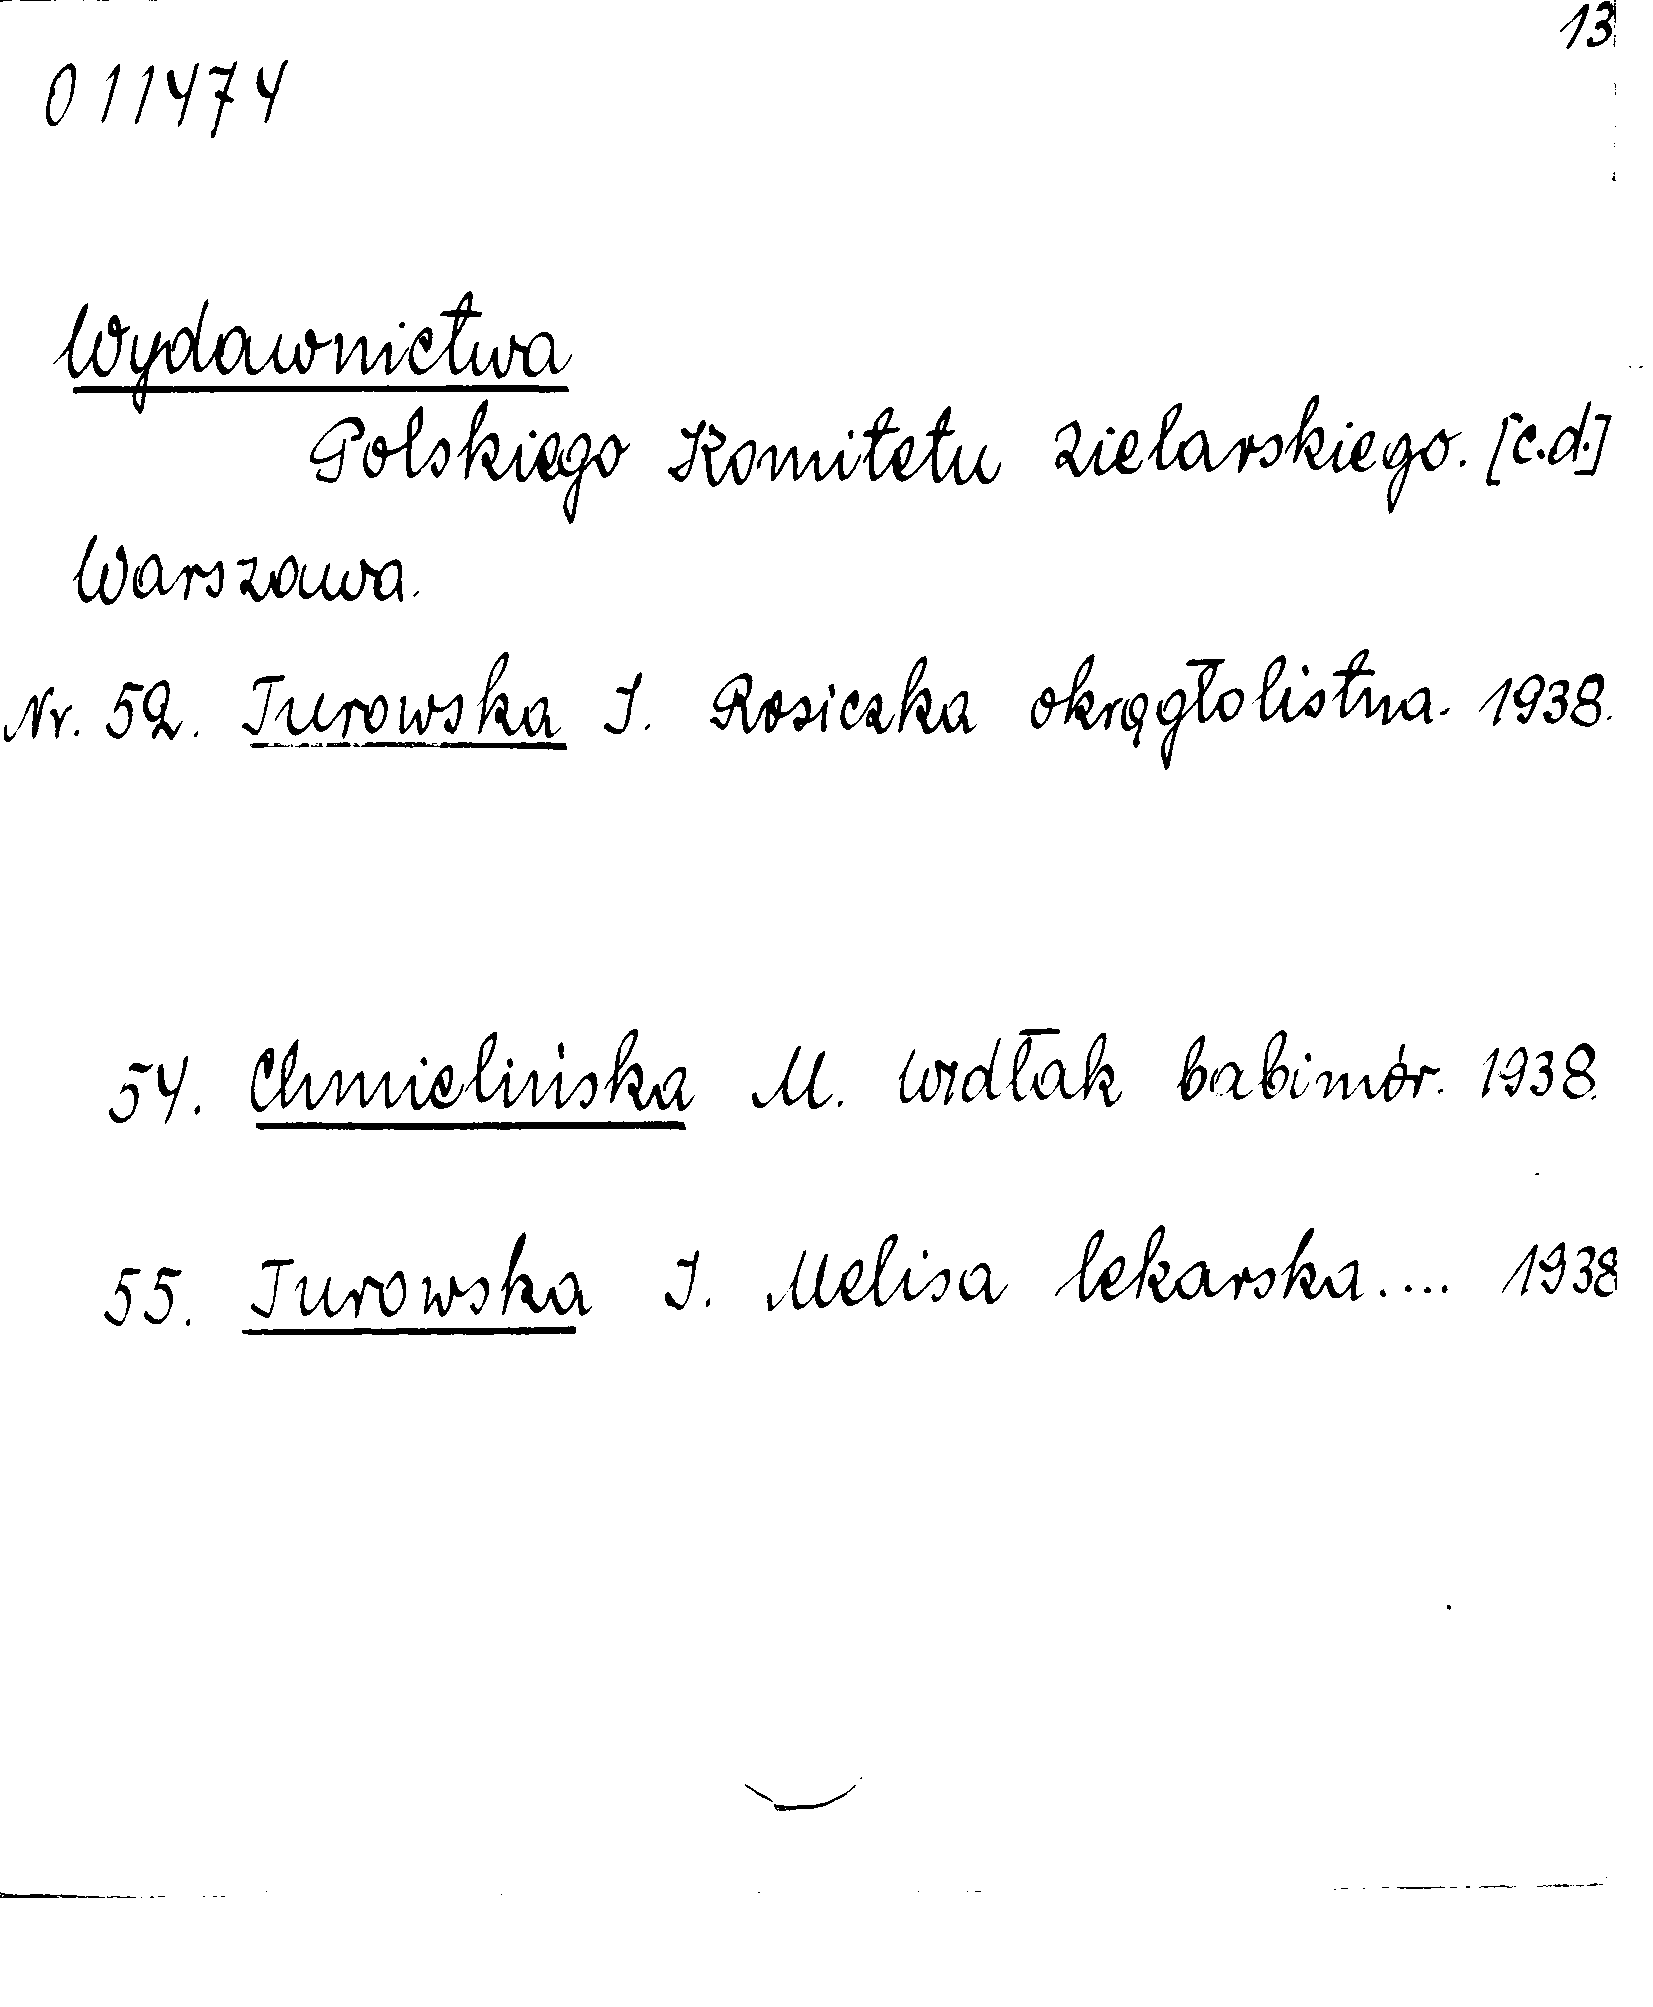 13
011474
Wydawnictwa
Polskiego Komitetu Zielarskiego. [c.d.]
Warszawa.
Nr. 52. Turowska I. Rosiczka okrągłolistna. 1938.
54. Chmielińska M. Widłak babimór. 1938.
55. Turowska I. Melisa lekarska.... 1938